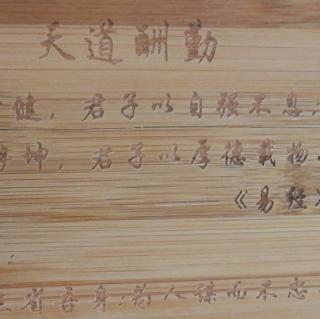 天道酬勤
健，君子以自强不息；
坤，君子以厚德载物
——《易经》
省吾身：为人谋而不忠